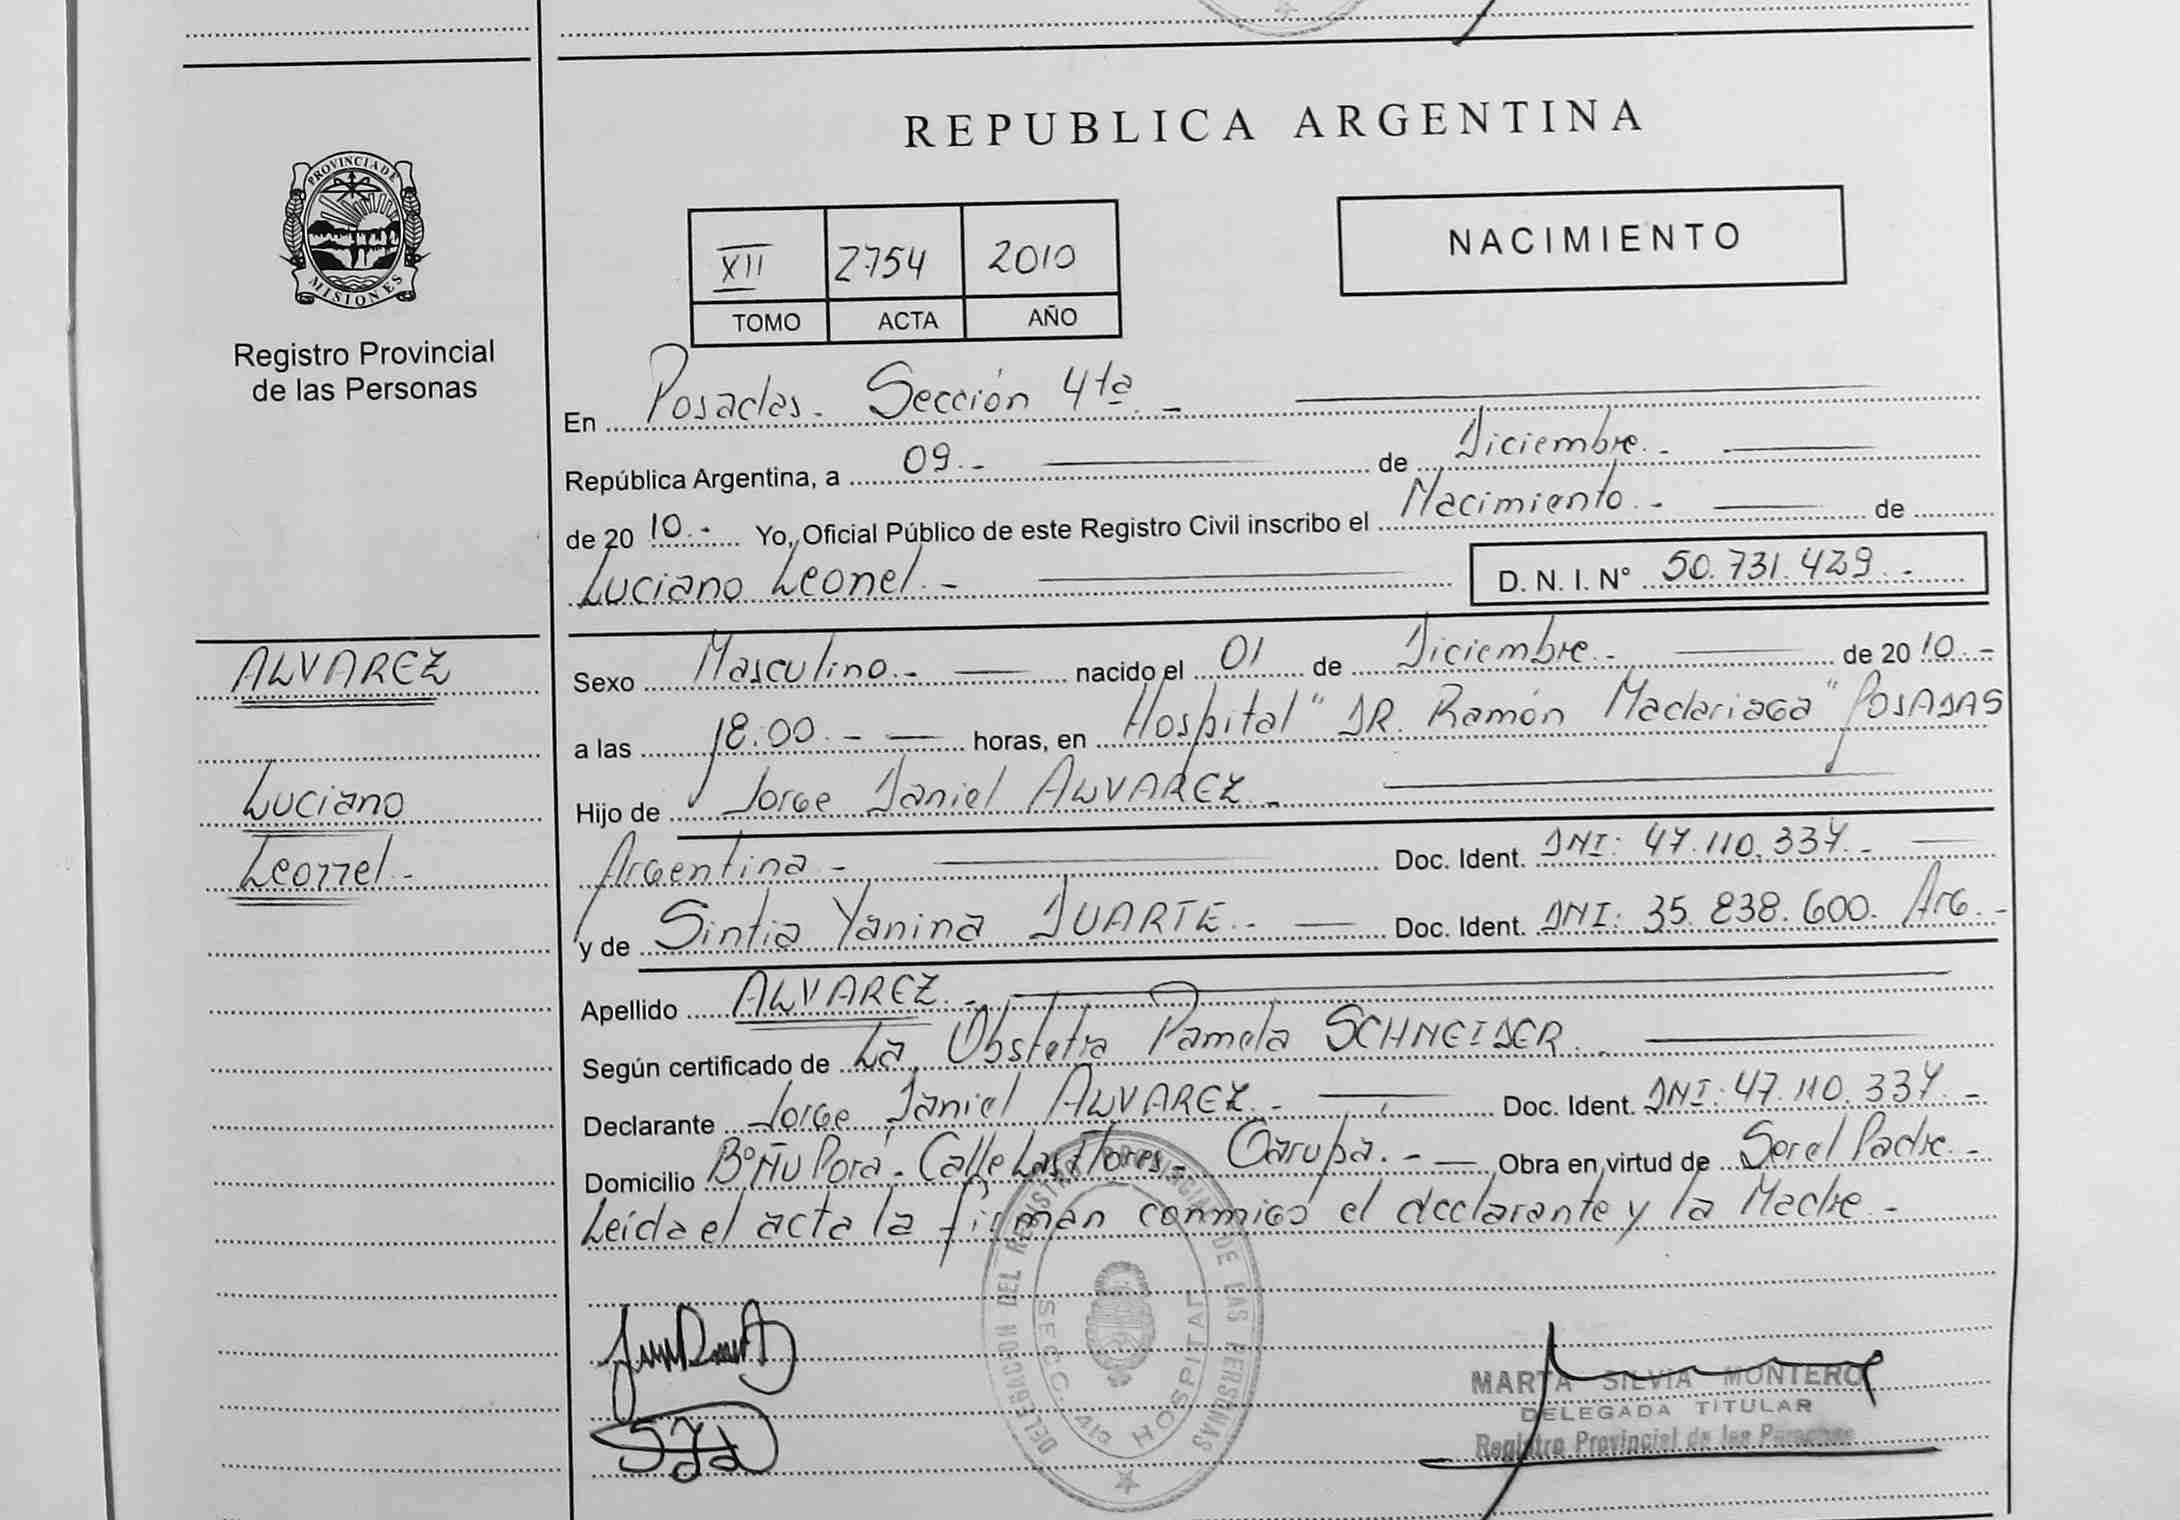 REPUBLICA ARGENTINA
PROVINCIA DE MISIONES
Registro Provincial
de las Personas
XII 2754 2010
TOMO ACTA AÑO
NACIMIENTO
En Posadas. Sección 4ta.-
República Argentina, a 09.- de Diciembre.-
de 2010.- Yo, Oficial Público de este Registro Civil inscribo el Nacimiento.- de
Luciano Leonel.- D. N. I. N° 50.731.429.-
ALVAREZ
Luciano
Leonel.-
Sexo Masculino.- nacido el 01 de Diciembre.- de 2010.-
a las 18:00.- horas, en Hospital "DR. Ramón Madariaga" POSADAS
Hijo de Jorge Daniel ALVAREZ.-
Argentina.- Doc. Ident. DNI: 47.110.337.-
y de Sintia Yanina DUARTE.- Doc. Ident. DNI: 35.838.600. Arg.-
Apellido ALVAREZ.-
Según certificado de La Obstetra Pamela SCHNEIDER.
Declarante Jorge Daniel ALVAREZ.- Doc. Ident. DNI: 47.110.337.-
Domicilio B° Ñu Porá. Calle Las Flores.- Garupá.- Obra en virtud de Ser el Padre.-
Leída el acta la firman conmigo el declarante y la Madre.-
DELEGACION DEL REGISTRO PROVINCIAL DE LAS PERSONAS
SECC. 4ta HOSPITAL
MARTA SILVIA MONTERO
DELEGADA TITULAR
Registro Provincial de las Personas